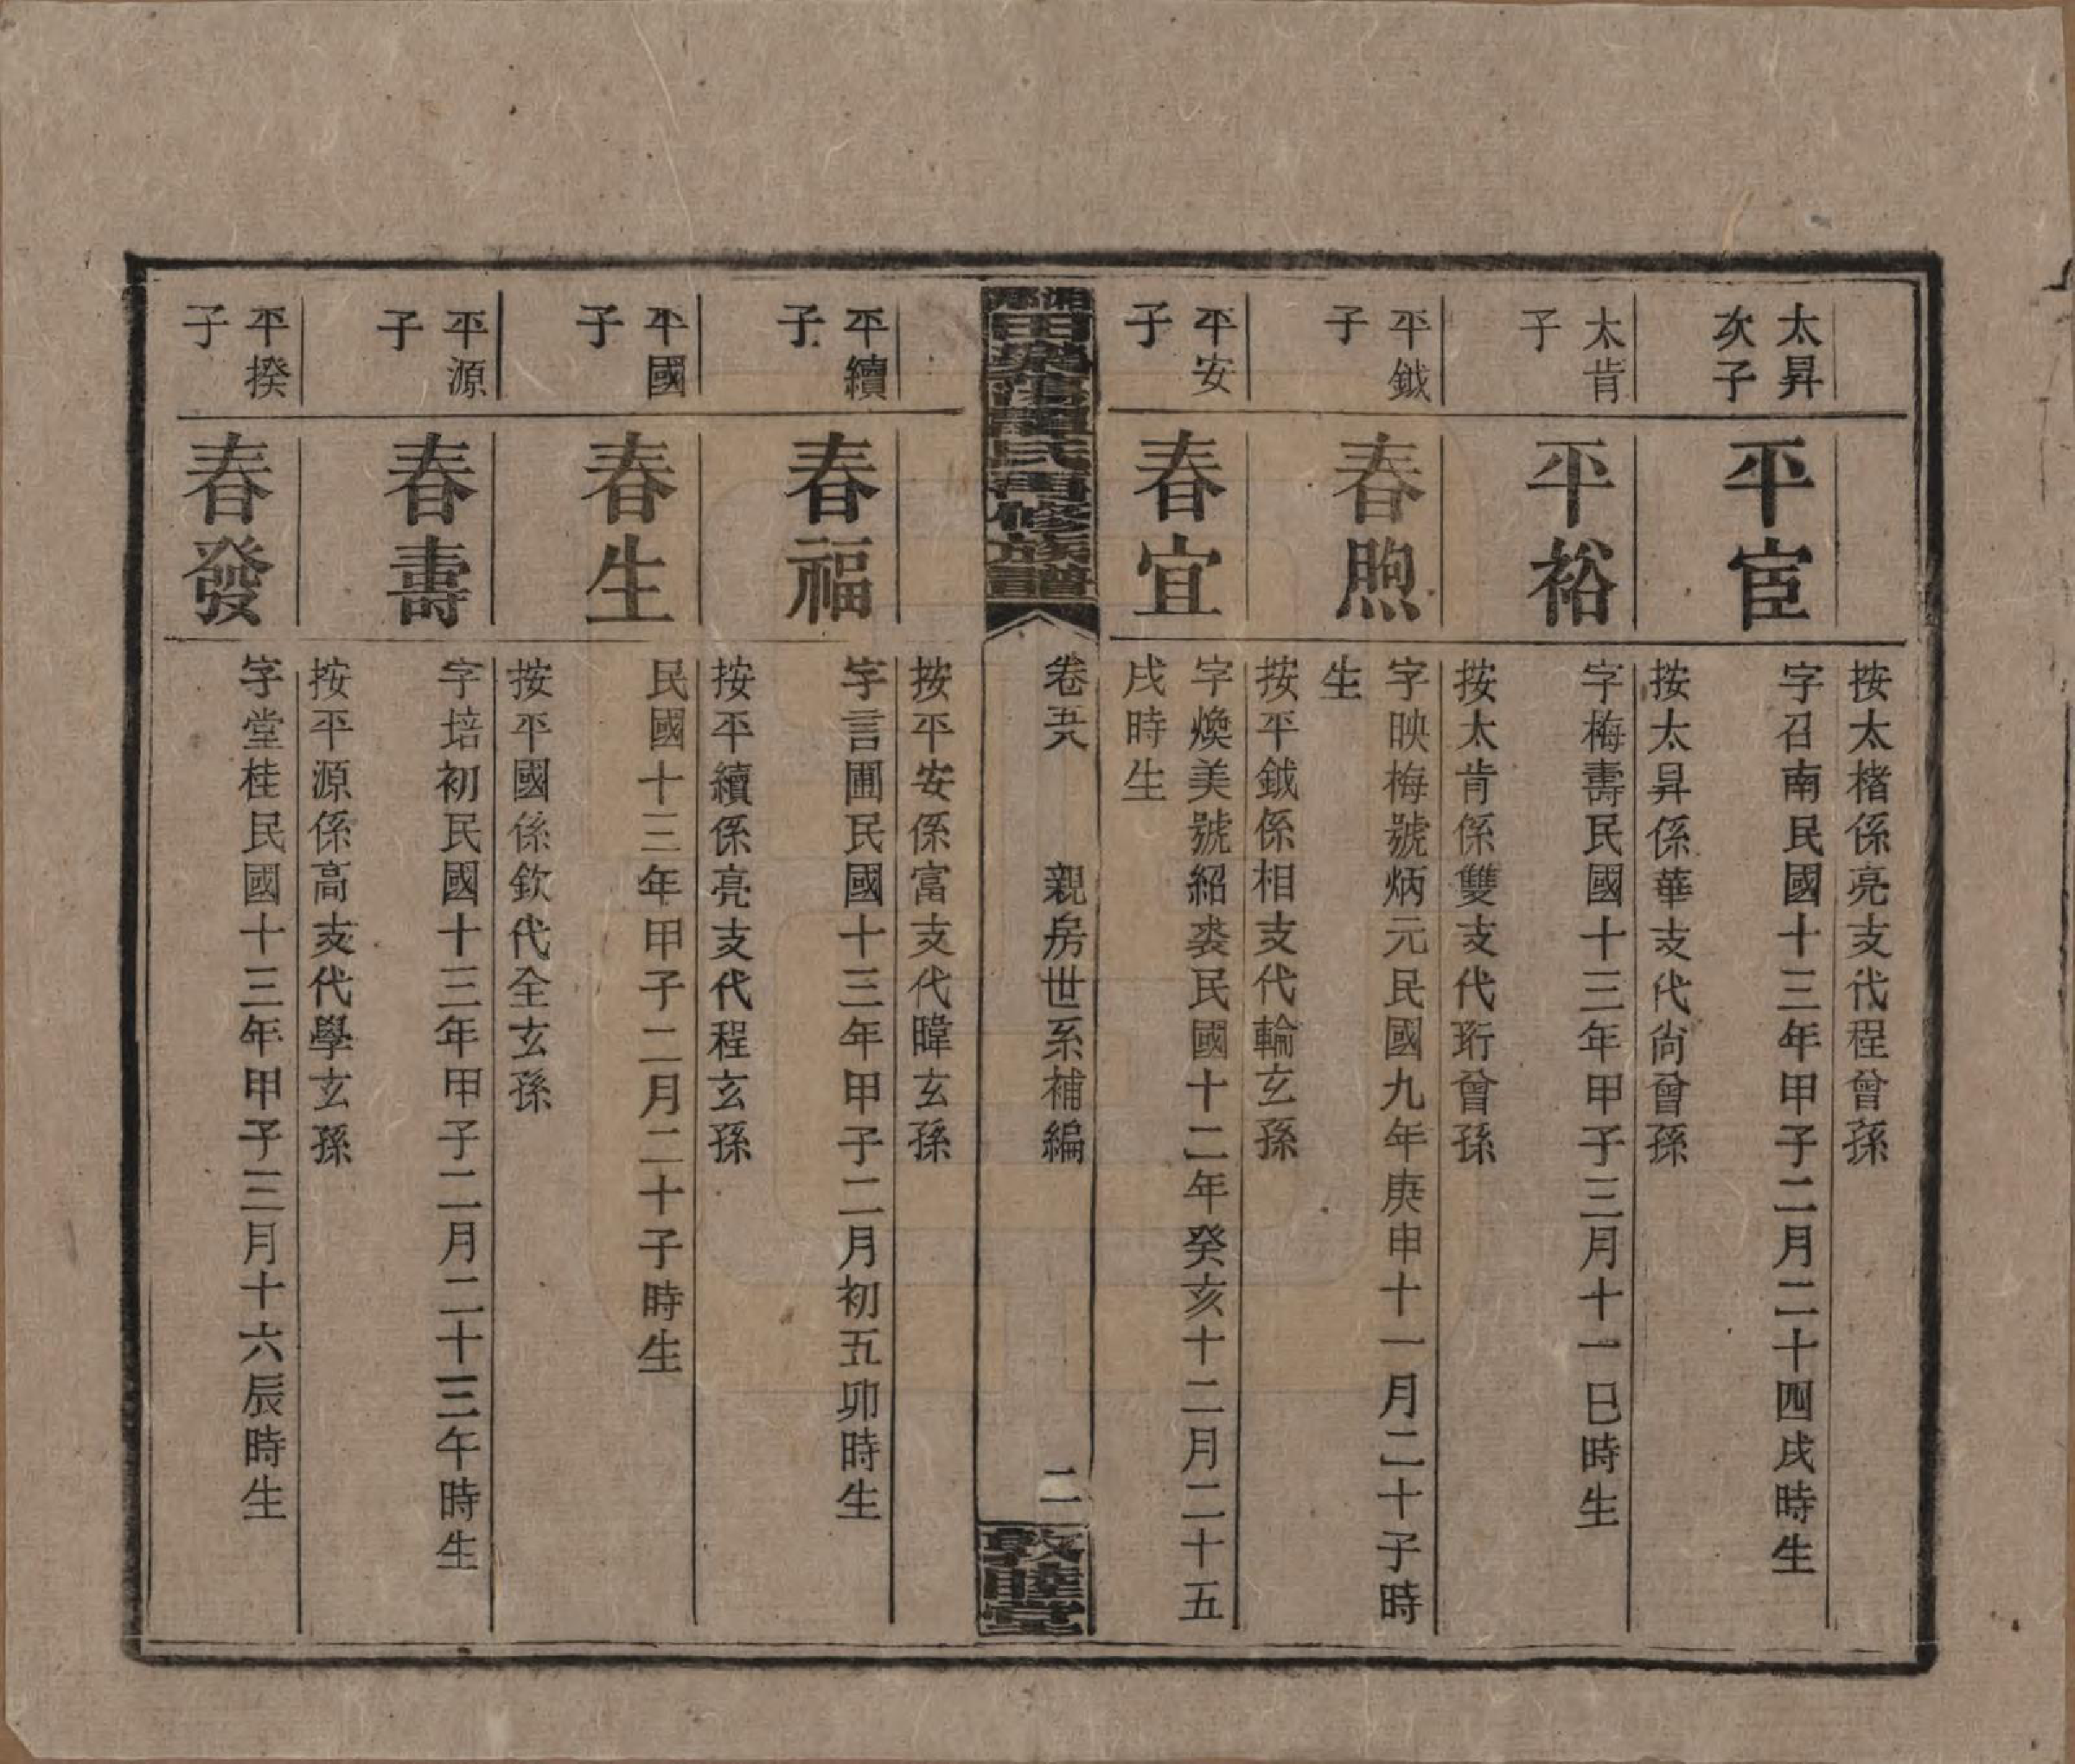 太昇次子
平宦
按太楮係亮支代程曾孫
字召南民國十三年甲子二月二十四戌時生
太肯子
平裕
按太昇係華支代尚曾孫
字梅壽民國十三年甲子三月十一巳時生
平鉞子
春煦
按太肯係雙支代珩曾孫
字映梅號炳元民國九年庚申十一月二十子時
生
平安子
春宜
按平鉞係相支代輪玄孫
字煥美號紹裘民國十二年癸亥十二月二十五
戌時生
田樂蕩譚氏再修族譜
卷五 親房世系補編
二
敦睦堂
平續子
春福
按平安係富支代暐玄孫
字言圃民國十三年甲子二月初五卯時生
平國子
春生
按平續係亮支代程玄孫
民國十三年甲子二月二十子時生
平源子
春壽
按平國係欽代全玄孫
字培初民國十三年甲子二月二十三午時生
平揆子
春發
按平源係高支代學玄孫
字堂桂民國十三年甲子三月十六辰時生